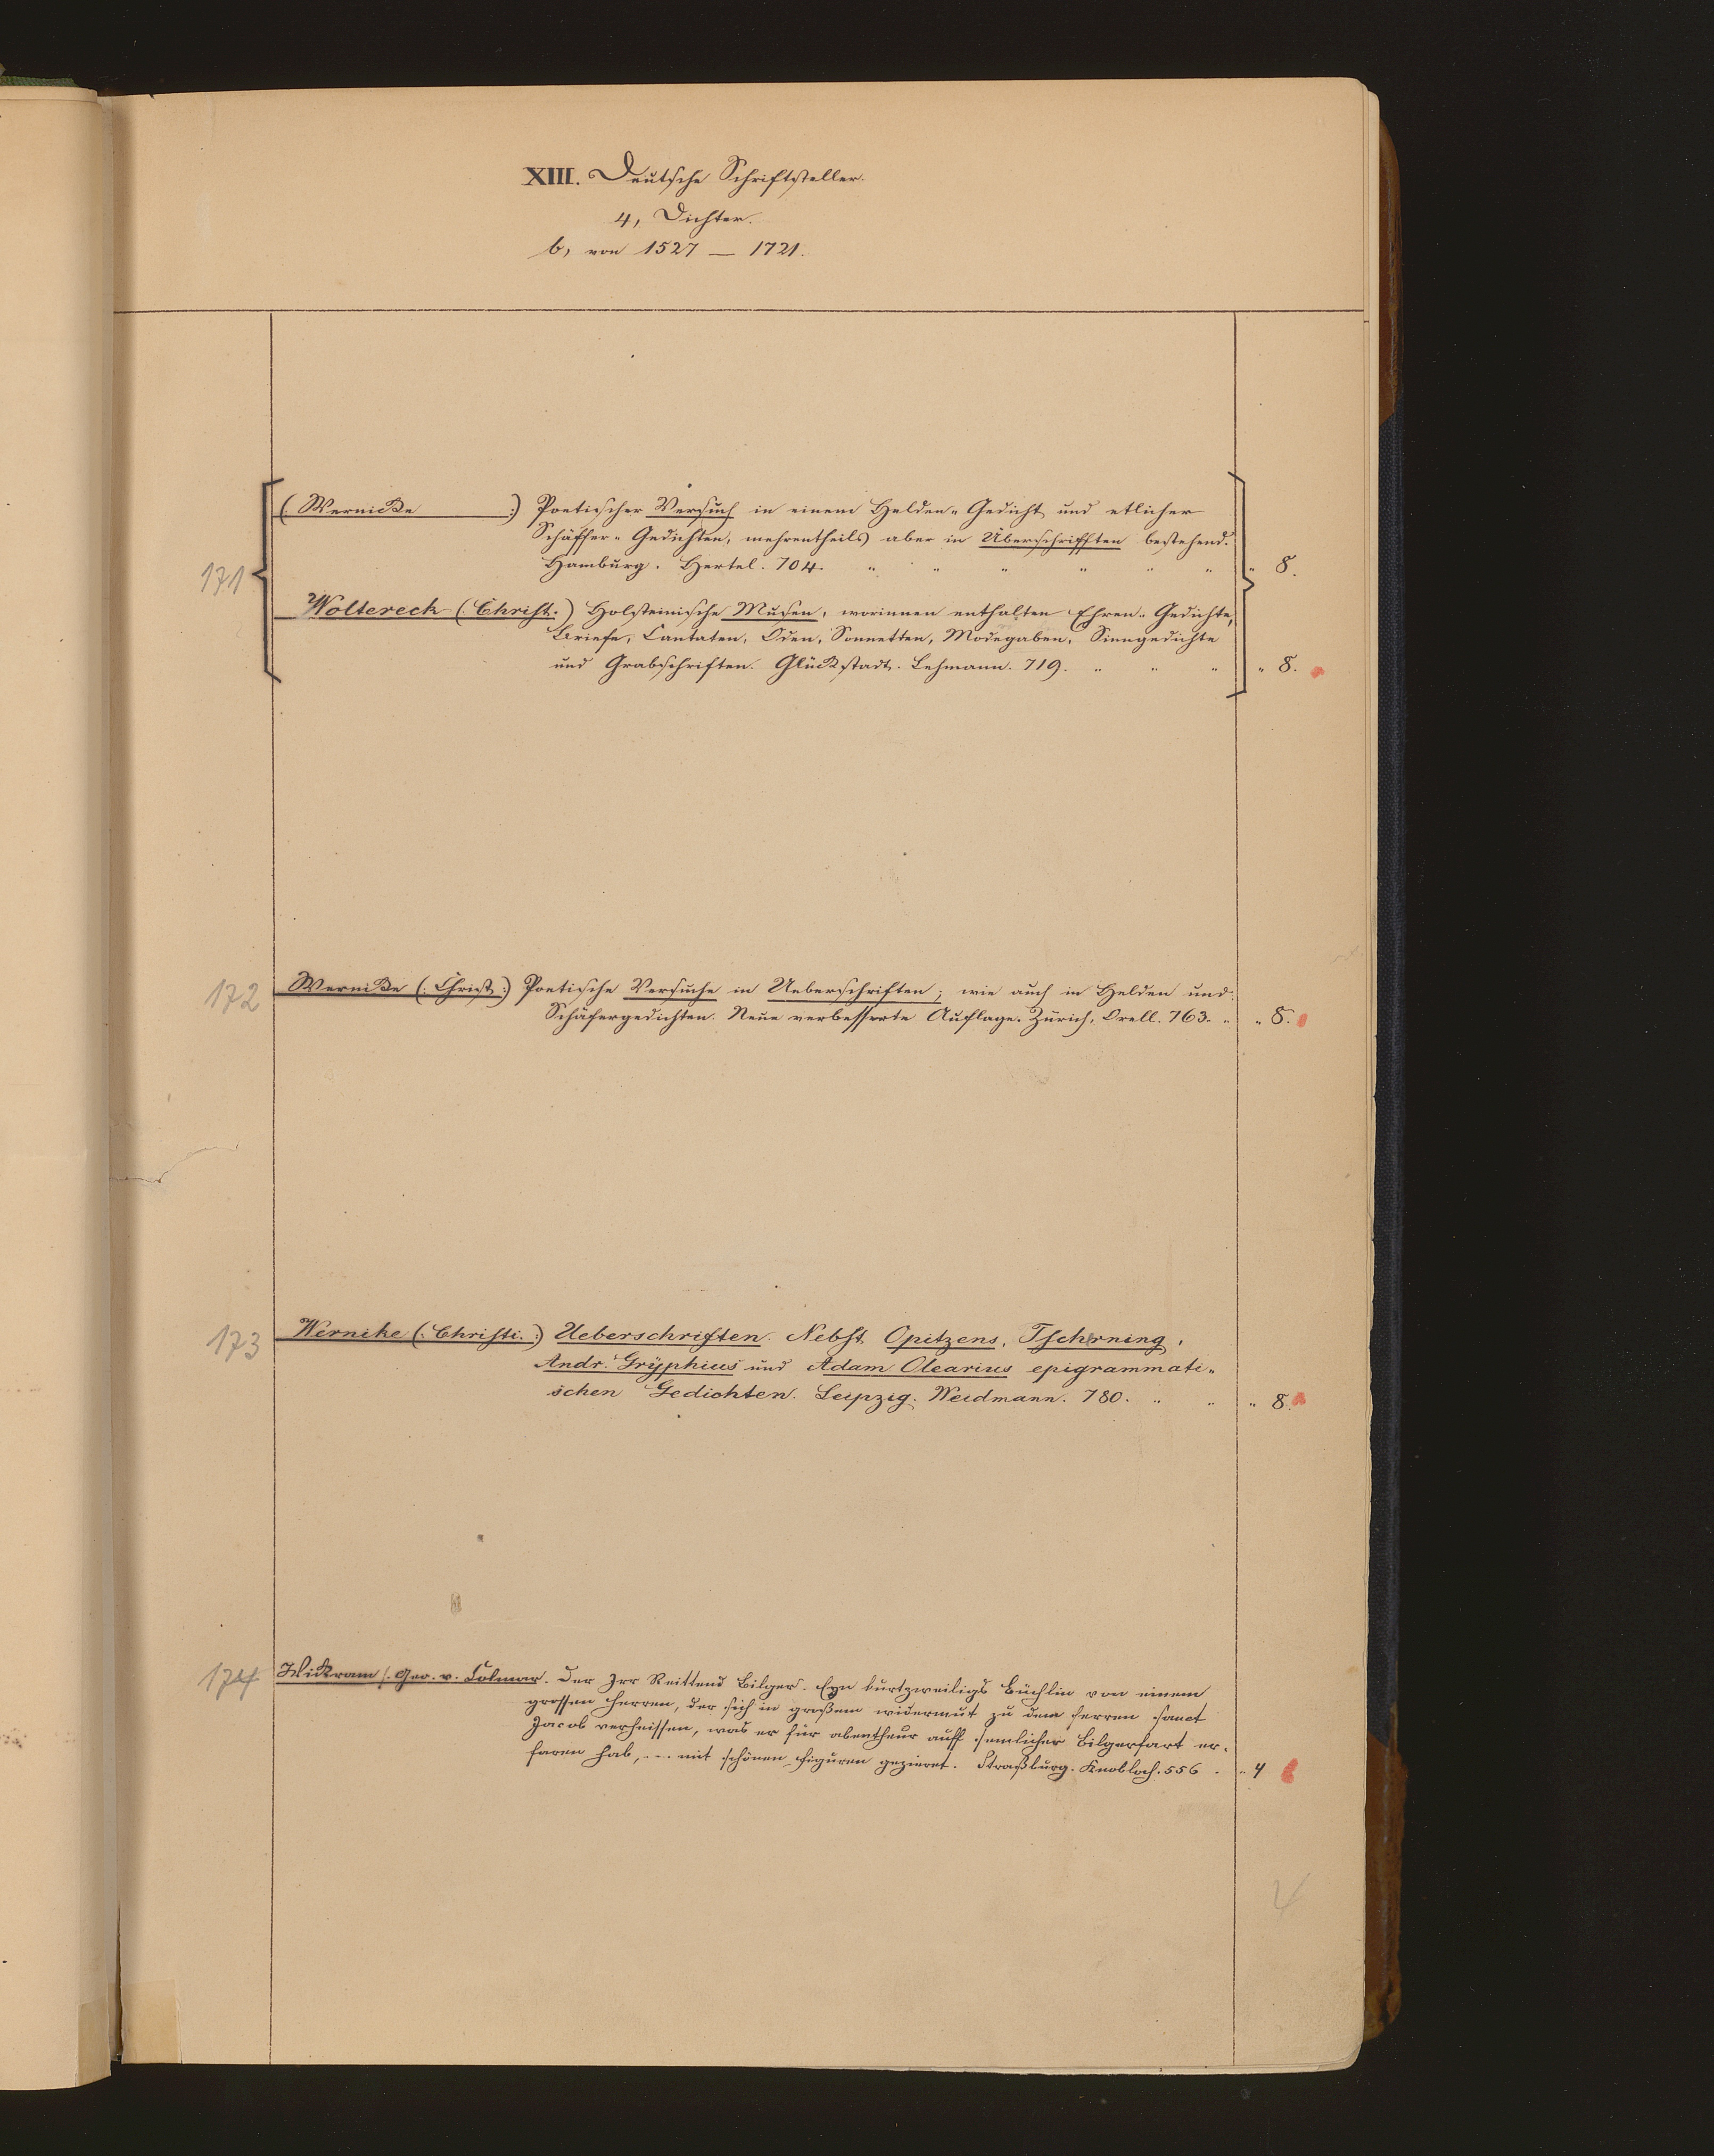 XIII. Deutsche Schriftsteller.
4, Dichter.
b, von 1527 — 1721.
171
(Wernicke :) Poetischer Versuch in einem Helden-Gedicht und etlicher
Schäffer-Gedichten, mehrentheils aber in Überschrifften bestehend.
Hamburg. Hertel. 704. " " " " " " " 8.
Woltereck (: Christ.) Holsteinische Musen, worinnen enthalten Ehren-Gedichte,
Briefe, Cantaten, Oden, Sonnetten, Modegaben, Sinngedichte
und Grabschriften. Glückstadt. Lehmann. 719. " " " " 8.
172
Wernicke (: Christ :) Poetische Versuche in Ueberschriften; wie auch in Helden und
Schäfergedichten. Neue verbesserte Auflage. Zürich, Orell. 763. " " 8.
173
Wernike (: Christi. :) Ueberschriften. Nebst Opitzens, Tscherning,
Andr. Gryphius und Adam Olearius epigrammati-
schen Gedichten. Leipzig. Weidmann. 780. " " " 8.
174
Wickram /. Geo. v. Colmar. Der Irr Reittend Bilger. Eyn kurtzweiligs Büchlin von einem
grossen Herren, der sich in großem widermut zu dem ferren sanct
Jacob verheissen, was er für abentheur auff semlicher Bilgerfart er-
faren hab, .... mit schönen Figuren gezieret. Straßburg. Knobloch. 556 . " 4
4